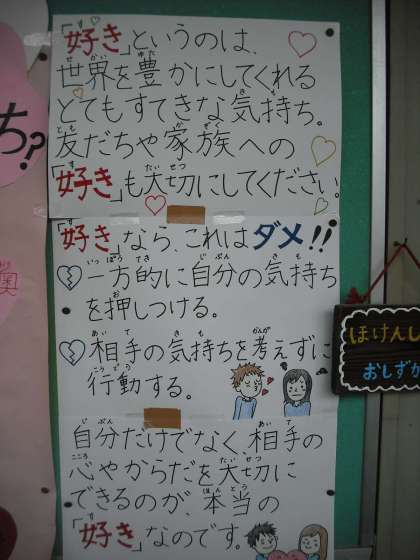 「好き」というのは、
世界を豊かにしてくれる
とてもすてきな気持ち。
友だちや家族への
「好き」も大切にしてください。
「好き」なら、これはダメ!!
一方的に自分の気持ち
を押しつける。
相手の気持ちを考えずに
行動する。
自分だけでなく、相手の
心やからだを大切に
できるのが、本当の
「好き」なのです。
ち?
ほけんし
おしずか